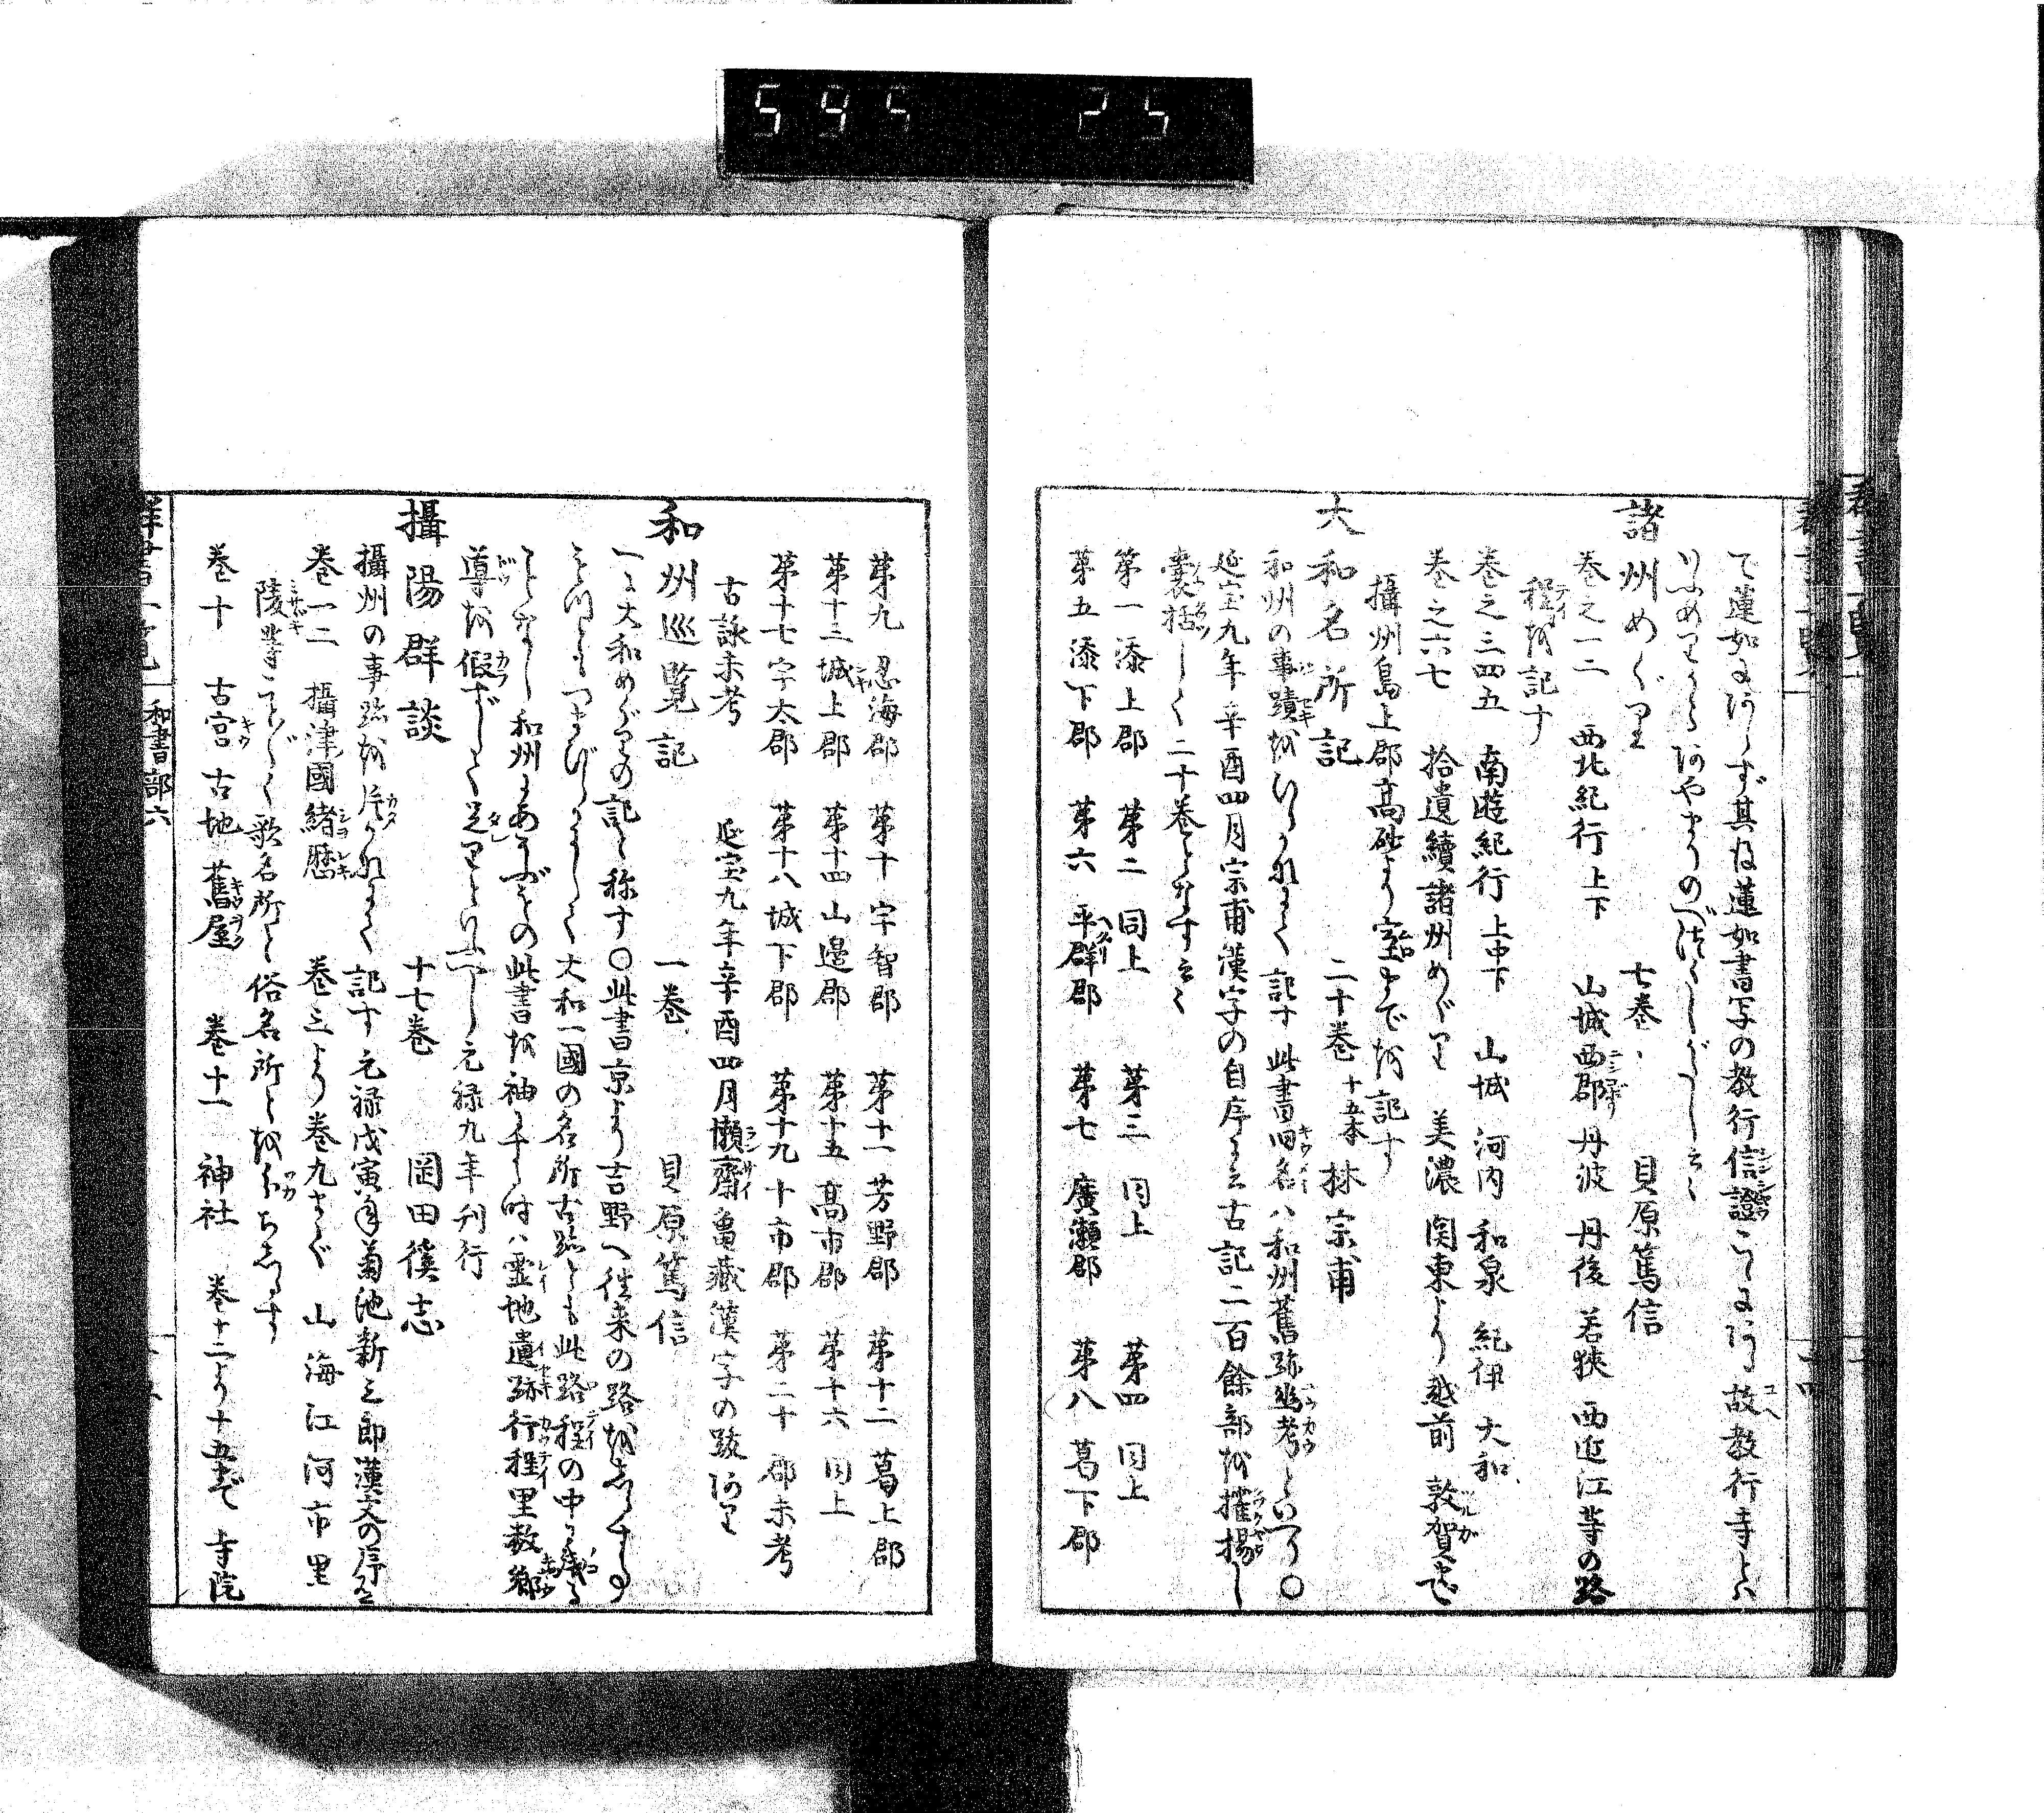 595 25
で蓮如にあらず其ゆゑ蓮如書写の教行信證こゝにあり故教行寺とは
いふめりとあやまりのべけらしがうし云々
諸州めぐり 七巻 貝原篤信
巻之一二 西北紀行上下 山城西郡 丹波 丹後 若狹 西近江等の路
程を記す
巻之三四五 南遊紀行上中下 山城 河内 和泉 紀伊 大和
巻之六七 拾遺續諸州めぐり 美濃 関東より越前 敦賀まで
攝州島上郡高砂より室までを記す
大和名所記 二十巻 十五本 林宗甫
和州の事蹟をくはしく記す此書旧名ハ和州舊跡幽考といへり○
延宝九年辛酉四月宗甫漢字の自序に云古記二百餘部を攉揚し
嚢括して二十巻となす云々
第一 添上郡 第二 同上 第三 同上 第四 同上
第五 添下郡 第六 平群郡 第七 廣瀬郡 第八 葛下郡
第九 忍海郡 第十 宇智郡 第十一 芳野郡 第十二 葛上郡
第十三 城上郡 第十四 山邉郡 第十五 高市郡 第十六 同上
第十七 宇太郡 第十八 城下郡 第十九 十市郡 第二十 郡未考
古詠未考 延宝九年辛酉四月懶齋亀蔵漢字の跋あり
和州巡覧記 一巻 貝原篤信
一に大和めぐりの記と称す○此書京より吉野へ往来の路をしるすの
みつまびらかにして大和一國の名所古跡とも此路程の中に載る
ことなし和州にあそぶもの此書を袖にする時ハ霊地遺跡行程里数郷
導を假ずして足りといふべし元禄九年刊行
攝陽群談 十七巻 岡田徯志
攝州の事跡を片かなにて記す元禄戊寅年菊池新三郎漢文の序云
巻一二 攝津國緒暦 巻三より巻九まで 山海江河市里
陵等こと〴〵く歌名所と俗名所とを分ちしるす
巻十 古宮 古地 舊屋 巻十一 神社 巻十二より十五まで 寺院
群書一覧 和書部六